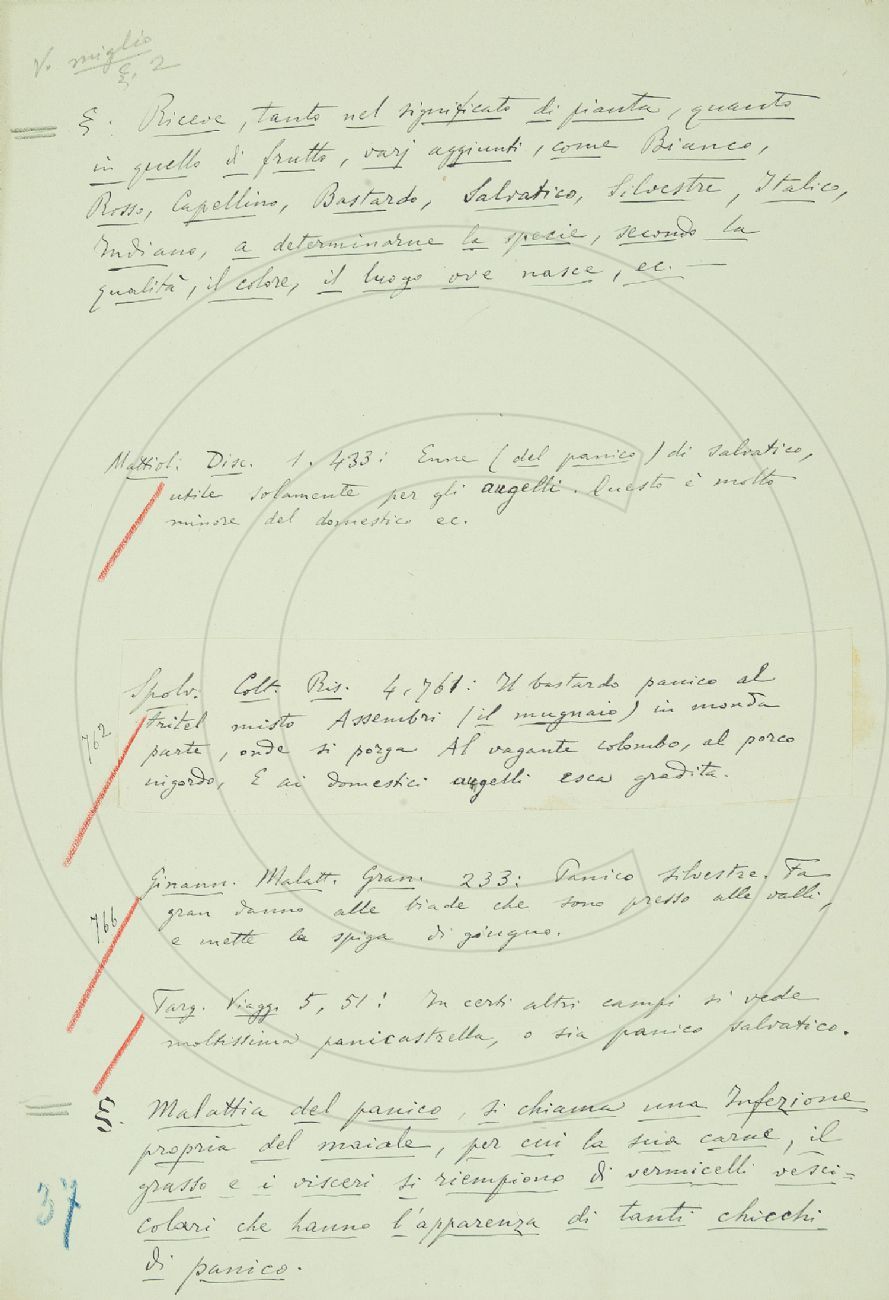 V. miglio
§. 2
§. Riceve, tanto nel significato di pianta, quanto
in quello di frutto, varj aggiunti, come Bianco,
Rosso, Capellino, Bastardo, Salvatico, Silvestre, Italico,
Indiano, a determinarne la specie, secondo la
qualità, il colore, il luogo ove nasce, ec. —
Mattiol. Disc. 1. 433: Enne (del panico) di salvatico,
utile solamente per gli augelli. Questo è molto
minore del domestico ec.
Spolv. Colt. Ris. 4, 761: Il bastardo panico al
Fritel misto Assembri (il mugnaio) in monda
762
parte, onde si porga Al vagante colombo, al porco
ingordo, E ai domestici augelli esca gradita.
Ginann. Malatt. Gran. 233: Panico silvestre. Fa
gran danno alle biade che sono presso alle valli,
766
e mette la spiga di giugno.
Targ. Viagg. 5, 51: In certi altri campi si vede
moltissima panicastrella, o sia panico salvatico.
§. Malattia del panico, si chiama una Infezione
propria del maiale, per cui la sua carne, il
grasso e i visceri si riempiono di vermicelli vesci=
37
colari che hanno l'apparenza di tanti chicchi
di panico.